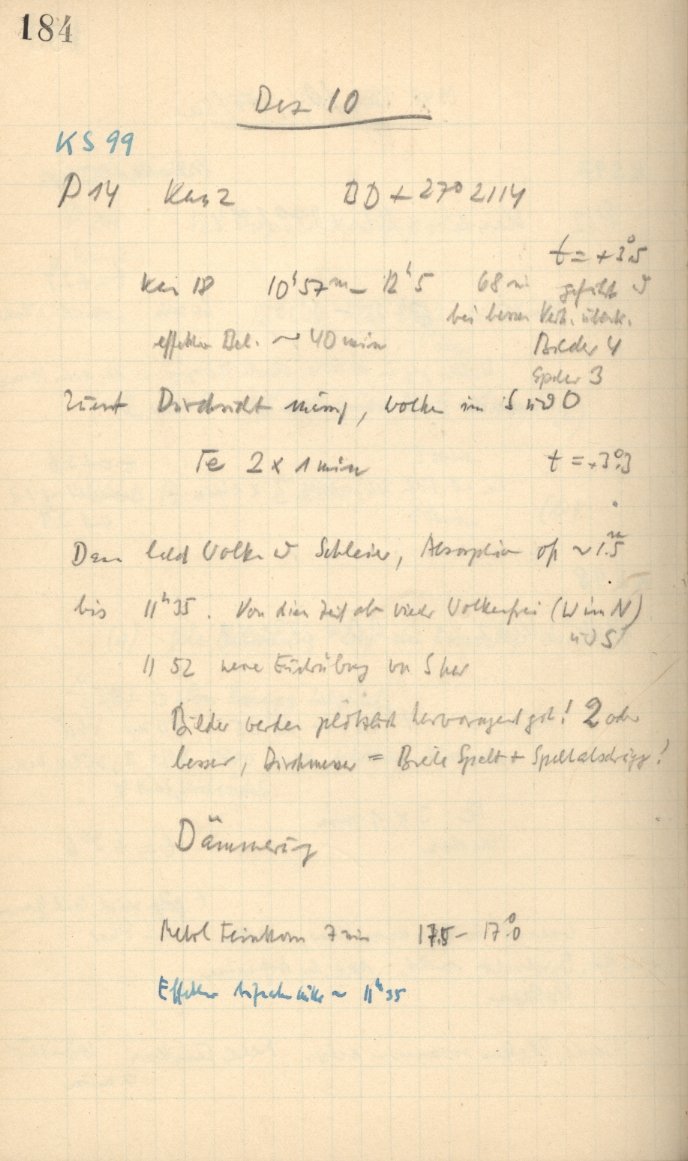 184
Dez 10
KS 99
P 14 Kas 2 BD + 27° 2114
t = + 3°.5
Kas 18 10h 57m – 12h 5 68 min gefühlt
bei besser
effektive Bel. ~ 40 min Bilder 4
3
Zuerst Durchsicht mässig, Wolken im S und O
Fe 2 x 1 min t = + 3°.3
Dann bald Wolken Schleier, Absorption oft ~ 1.5m
bis 11h 35. Von dieser Zeit ab wieder Wolkenfrei (W im N)
und S
11 52 neue Eintrübung von S her
Bilder werden plötzlich hervorragend gut! 2 oder
besser, Durchmesser = Breite Spalt + Spaltabschrägg!
Dämmerung
Metol Feinkorn 7 min 17.5 – 17°.0
Effektive ~ 11h 35